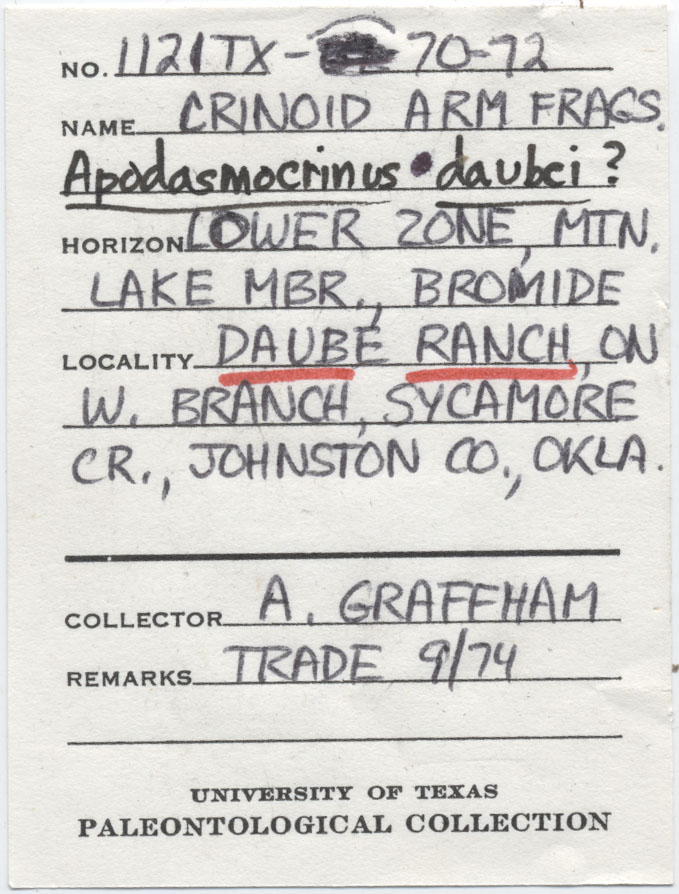 NO. 1121TX- 70-72
NAME CRINOID ARM FRAGS.
Apodasmocrinus daubei?
HORIZON LOWER ZONE, MTN.
LAKE MBR., BROMIDE
LOCALITY DAUBE RANCH, ON
W. BRANCH, SYCAMORE
CR., JOHNSTON CO., OKLA.
COLLECTOR A. GRAFFHAM
REMARKS TRADE 9/74
UNIVERSITY OF TEXAS
PALEONTOLOGICAL COLLECTION